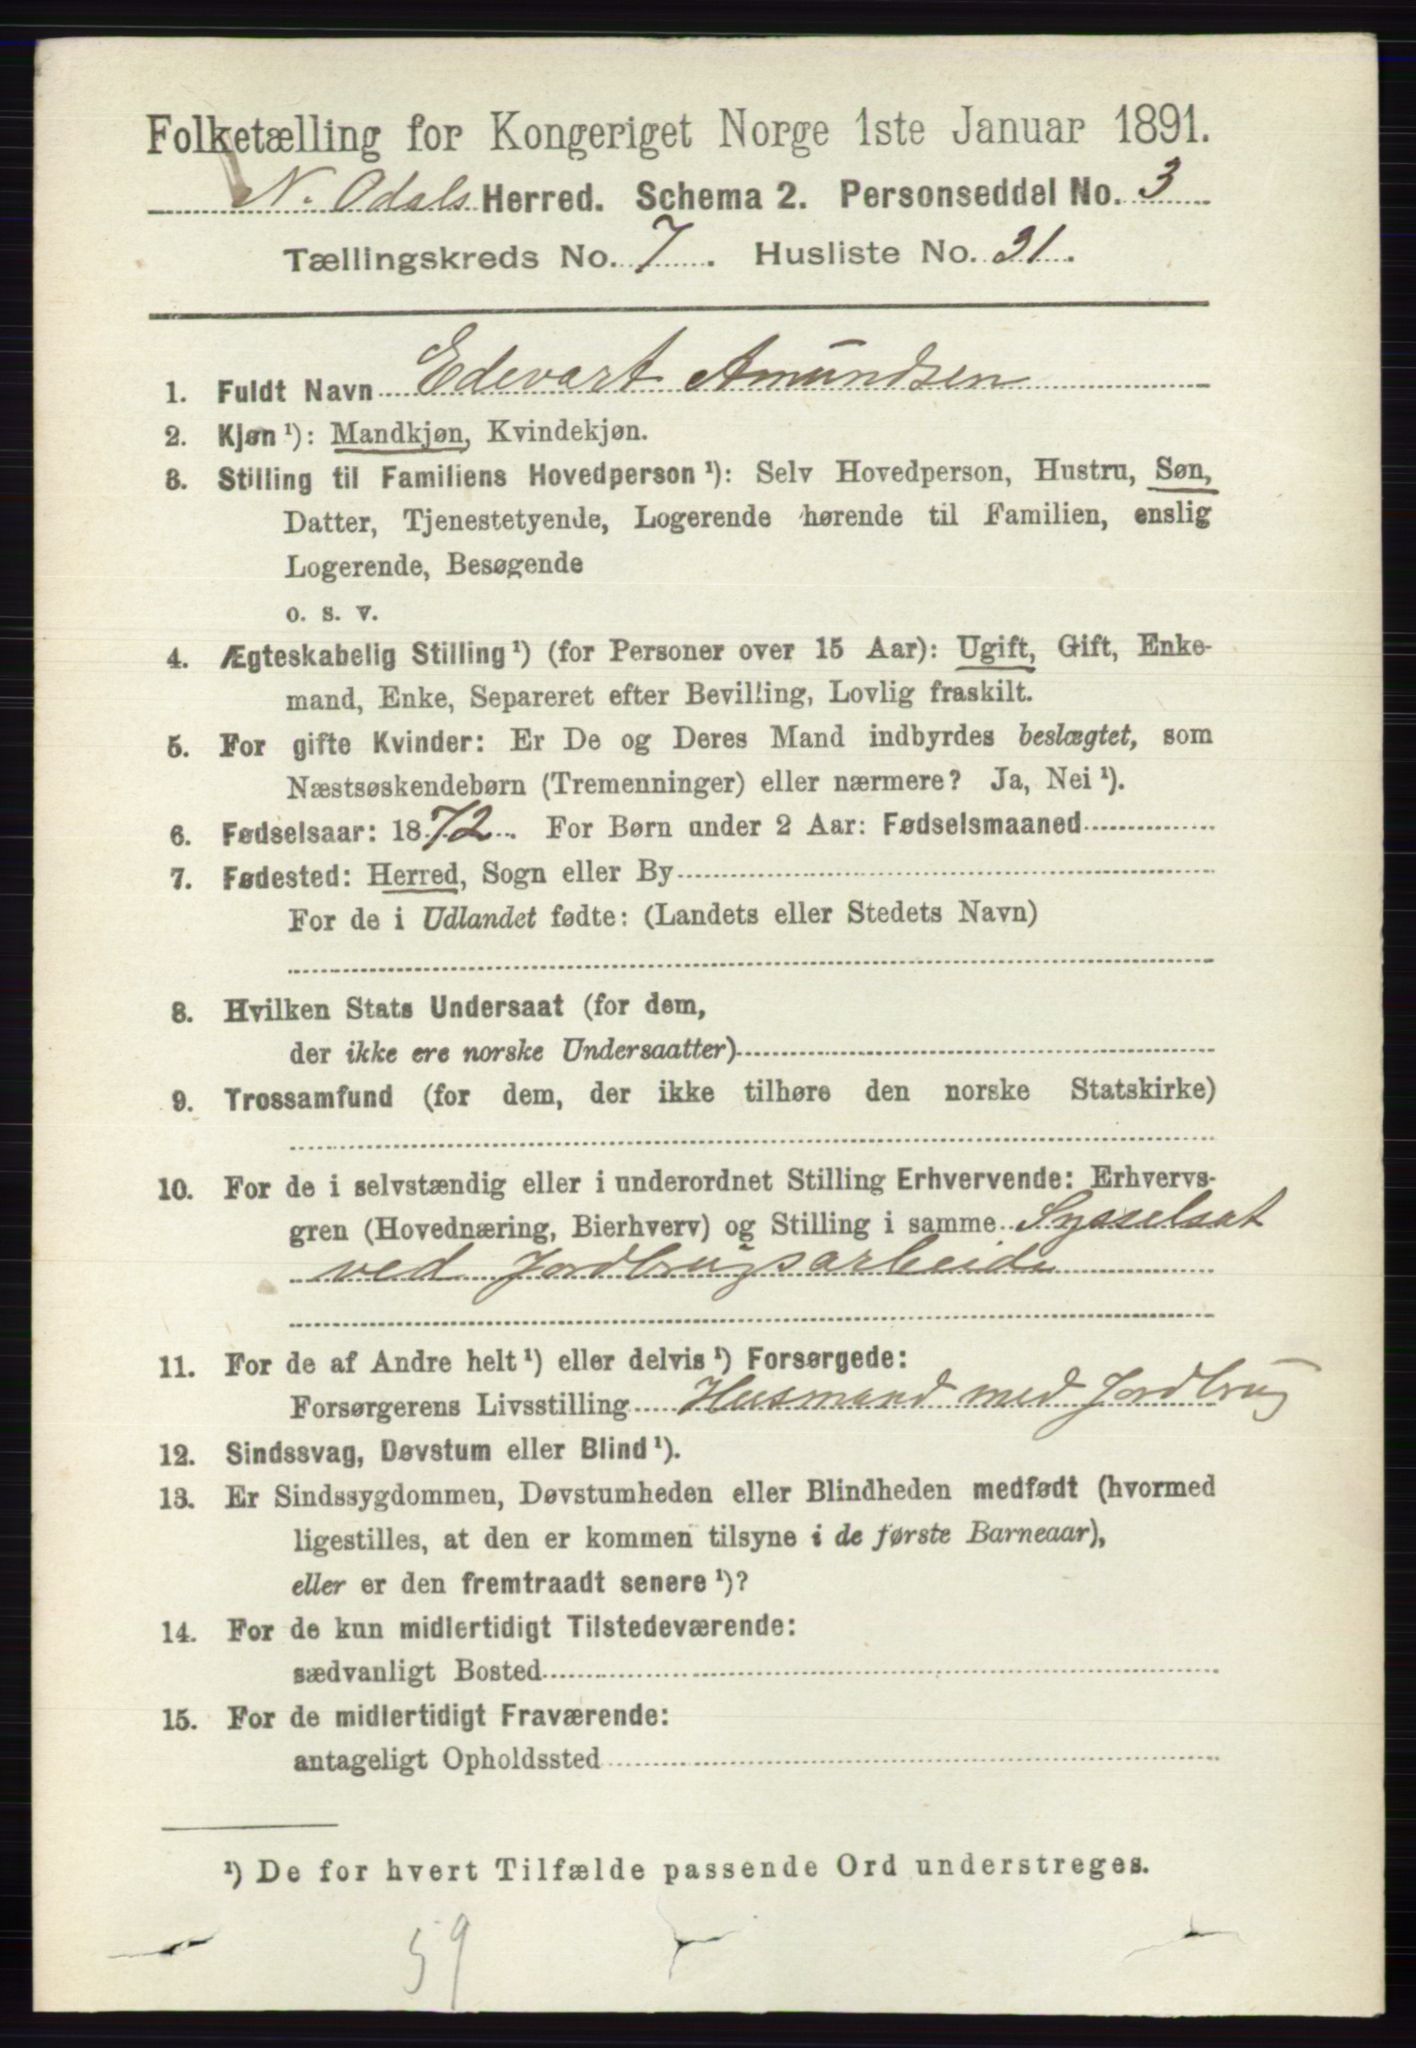 Folketælling for Kongeriget Norge 1ste Januar 1891.
N. Odals Herred. Schema 2. Personseddel No. 3
Tællingskreds No. 7. Husliste No. 31.
1. Fuldt Navn Edevart Amundsen
2. Kjøn ¹): Mandkjøn, Kvindekjøn.
3. Stilling til Familiens Hovedperson ¹): Selv Hovedperson, Hustru, Søn,
Datter, Tjenestetyende, Logerende hørende til Familien, enslig
Logerende, Besøgende
o. s. v.
4. Ægteskabelig Stilling ¹) (for Personer over 15 Aar): Ugift, Gift, Enke-
mand, Enke, Separeret efter Bevilling, Lovlig fraskilt.
5. For gifte Kvinder: Er De og Deres Mand indbyrdes beslægtet, som
Næstsøskendebørn (Tremenninger) eller nærmere? Ja, Nei ¹).
6. Fødselsaar: 1872. For Børn under 2 Aar: Fødselsmaaned
7. Fødested: Herred, Sogn eller By
For de i Udlandet fødte: (Landets eller Stedets Navn)
8. Hvilken Stats Undersaat (for dem,
der ikke ere norske Undersaatter)
9. Trossamfund (for dem, der ikke tilhøre den norske Statskirke)
10. For de i selvstændig eller i underordnet Stilling Erhvervende: Erhvervs-
gren (Hovednæring, Bierhverv) og Stilling i samme Sysselsat
ved Jordbrugsarbeide
11. For de af Andre helt ¹) eller delvis ¹) Forsørgede:
Forsørgerens Livsstilling Husmand med Jordbrug
12. Sindssvag, Døvstum eller Blind ¹).
13. Er Sindssygdommen, Døvstumheden eller Blindheden medfødt (hvormed
ligestilles, at den er kommen tilsyne i de første Barneaar),
eller er den fremtraadt senere ¹)?
14. For de kun midlertidigt Tilstedeværende:
sædvanligt Bosted
15. For de midlertidigt Fraværende:
antageligt Opholdssted
¹) De for hvert Tilfælde passende Ord understreges.
59